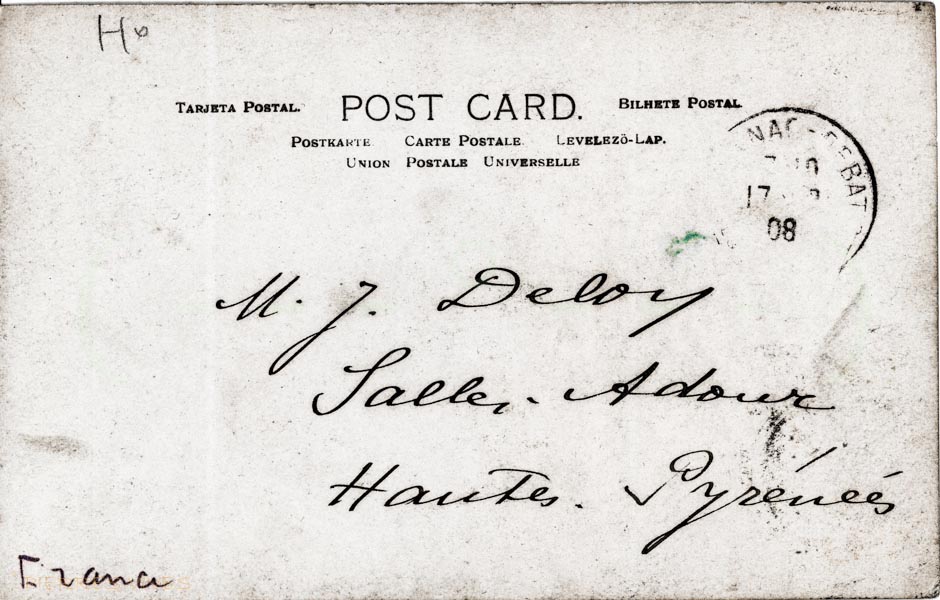 TARJETA POSTAL. POST CARD. BILHETE POSTAL
POSTKARTE CARTE POSTALE LEVELEZÖ-LAP.
UNION POSTALE UNIVERSELLE
17
08
M. J. Deloy
Salles-Adour
Hautes. Pyrénées
France